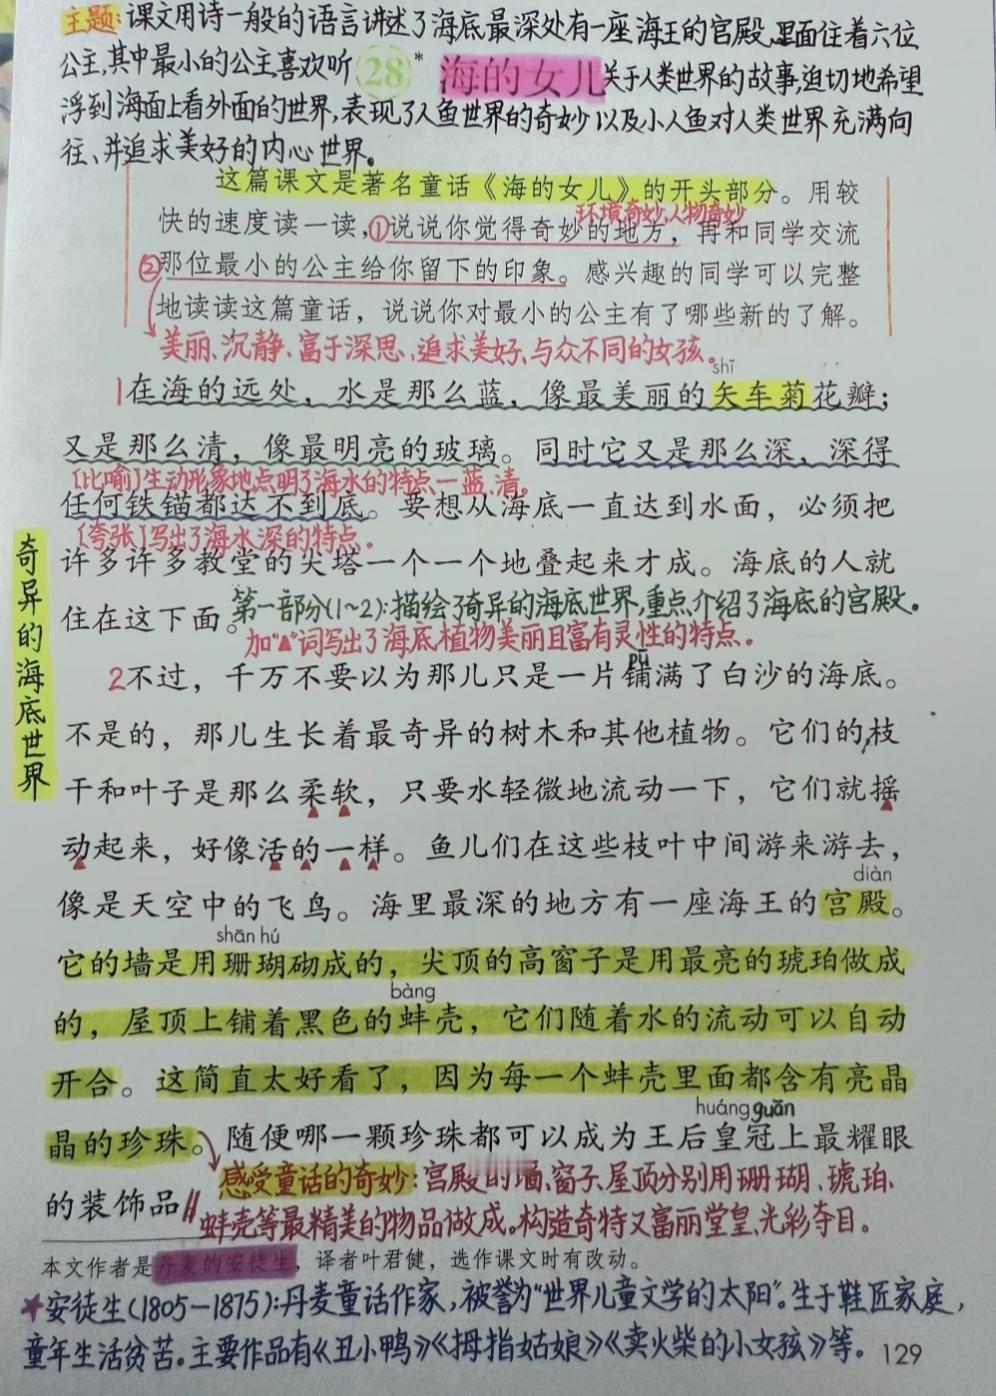 主题:课文用诗一般的语言讲述了海底最深处有一座海王的宫殿,里面住着六位
公主,其中最小的公主喜欢听
28* 海的女儿
关于人类世界的故事,迫切地希望
浮到海面上看外面的世界,表现了人鱼世界的奇妙以及小人鱼对人类世界充满向
往、并追求美好的内心世界。
这篇课文是著名童话《海的女儿》的开头部分。用较
环境奇妙,人物奇妙
快的速度读一读,①说说你觉得奇妙的地方,再和同学交流
②那位最小的公主给你留下的印象。感兴趣的同学可以完整
地读读这篇童话,说说你对最小的公主有了哪些新的了解。
美丽、沉静、富于深思、追求美好、与众不同的女孩。
shǐ
1在海的远处,水是那么蓝,像最美丽的矢车菊花瓣;
又是那么清,像最明亮的玻璃。同时它又是那么深,深得
[比喻]生动形象地点明了海水的特点—蓝、清。
任何铁锚都达不到底。要想从海底一直达到水面,必须把
[夸张]写出了海水深的特点。
许多许多教堂的尖塔一个一个地叠起来才成。海底的人就
住在这下面。
第一部分(1~2):描绘了奇异的海底世界,重点介绍了海底的宫殿。
加“▲”词写出了海底植物美丽且富有灵性的特点。
奇异的海底世界
pū
2不过,千万不要以为那儿只是一片铺满了白沙的海底。
不是的,那儿生长着最奇异的树木和其他植物。它们的枝
干和叶子是那么柔软,只要水轻微地流动一下,它们就摇
动起来,好像活的一样。鱼儿们在这些枝叶中间游来游去,
diàn
像是天空中的飞鸟。海里最深的地方有一座海王的宫殿。
shān hú
它的墙是用珊瑚砌成的,尖顶的高窗子是用最亮的琥珀做成
bàng
的,屋顶上铺着黑色的蚌壳,它们随着水的流动可以自动
开合。这简直太好看了,因为每一个蚌壳里面都含有亮晶
huáng guān
晶的珍珠。随便哪一颗珍珠都可以成为王后皇冠上最耀眼
的装饰品
感受童话的奇妙:宫殿的墙、窗子、屋顶分别用珊瑚、琥珀、
蚌壳等最精美的物品做成。构造奇特又富丽堂皇、光彩夺目。
本文作者是丹麦的安徒生,译者叶君健,选作课文时有改动。
★安徒生(1805—1875):丹麦童话作家,被誉为“世界儿童文学的太阳”。生于鞋匠家庭,
童年生活贫苦。主要作品有《丑小鸭》《拇指姑娘》《卖火柴的小女孩》等。
129